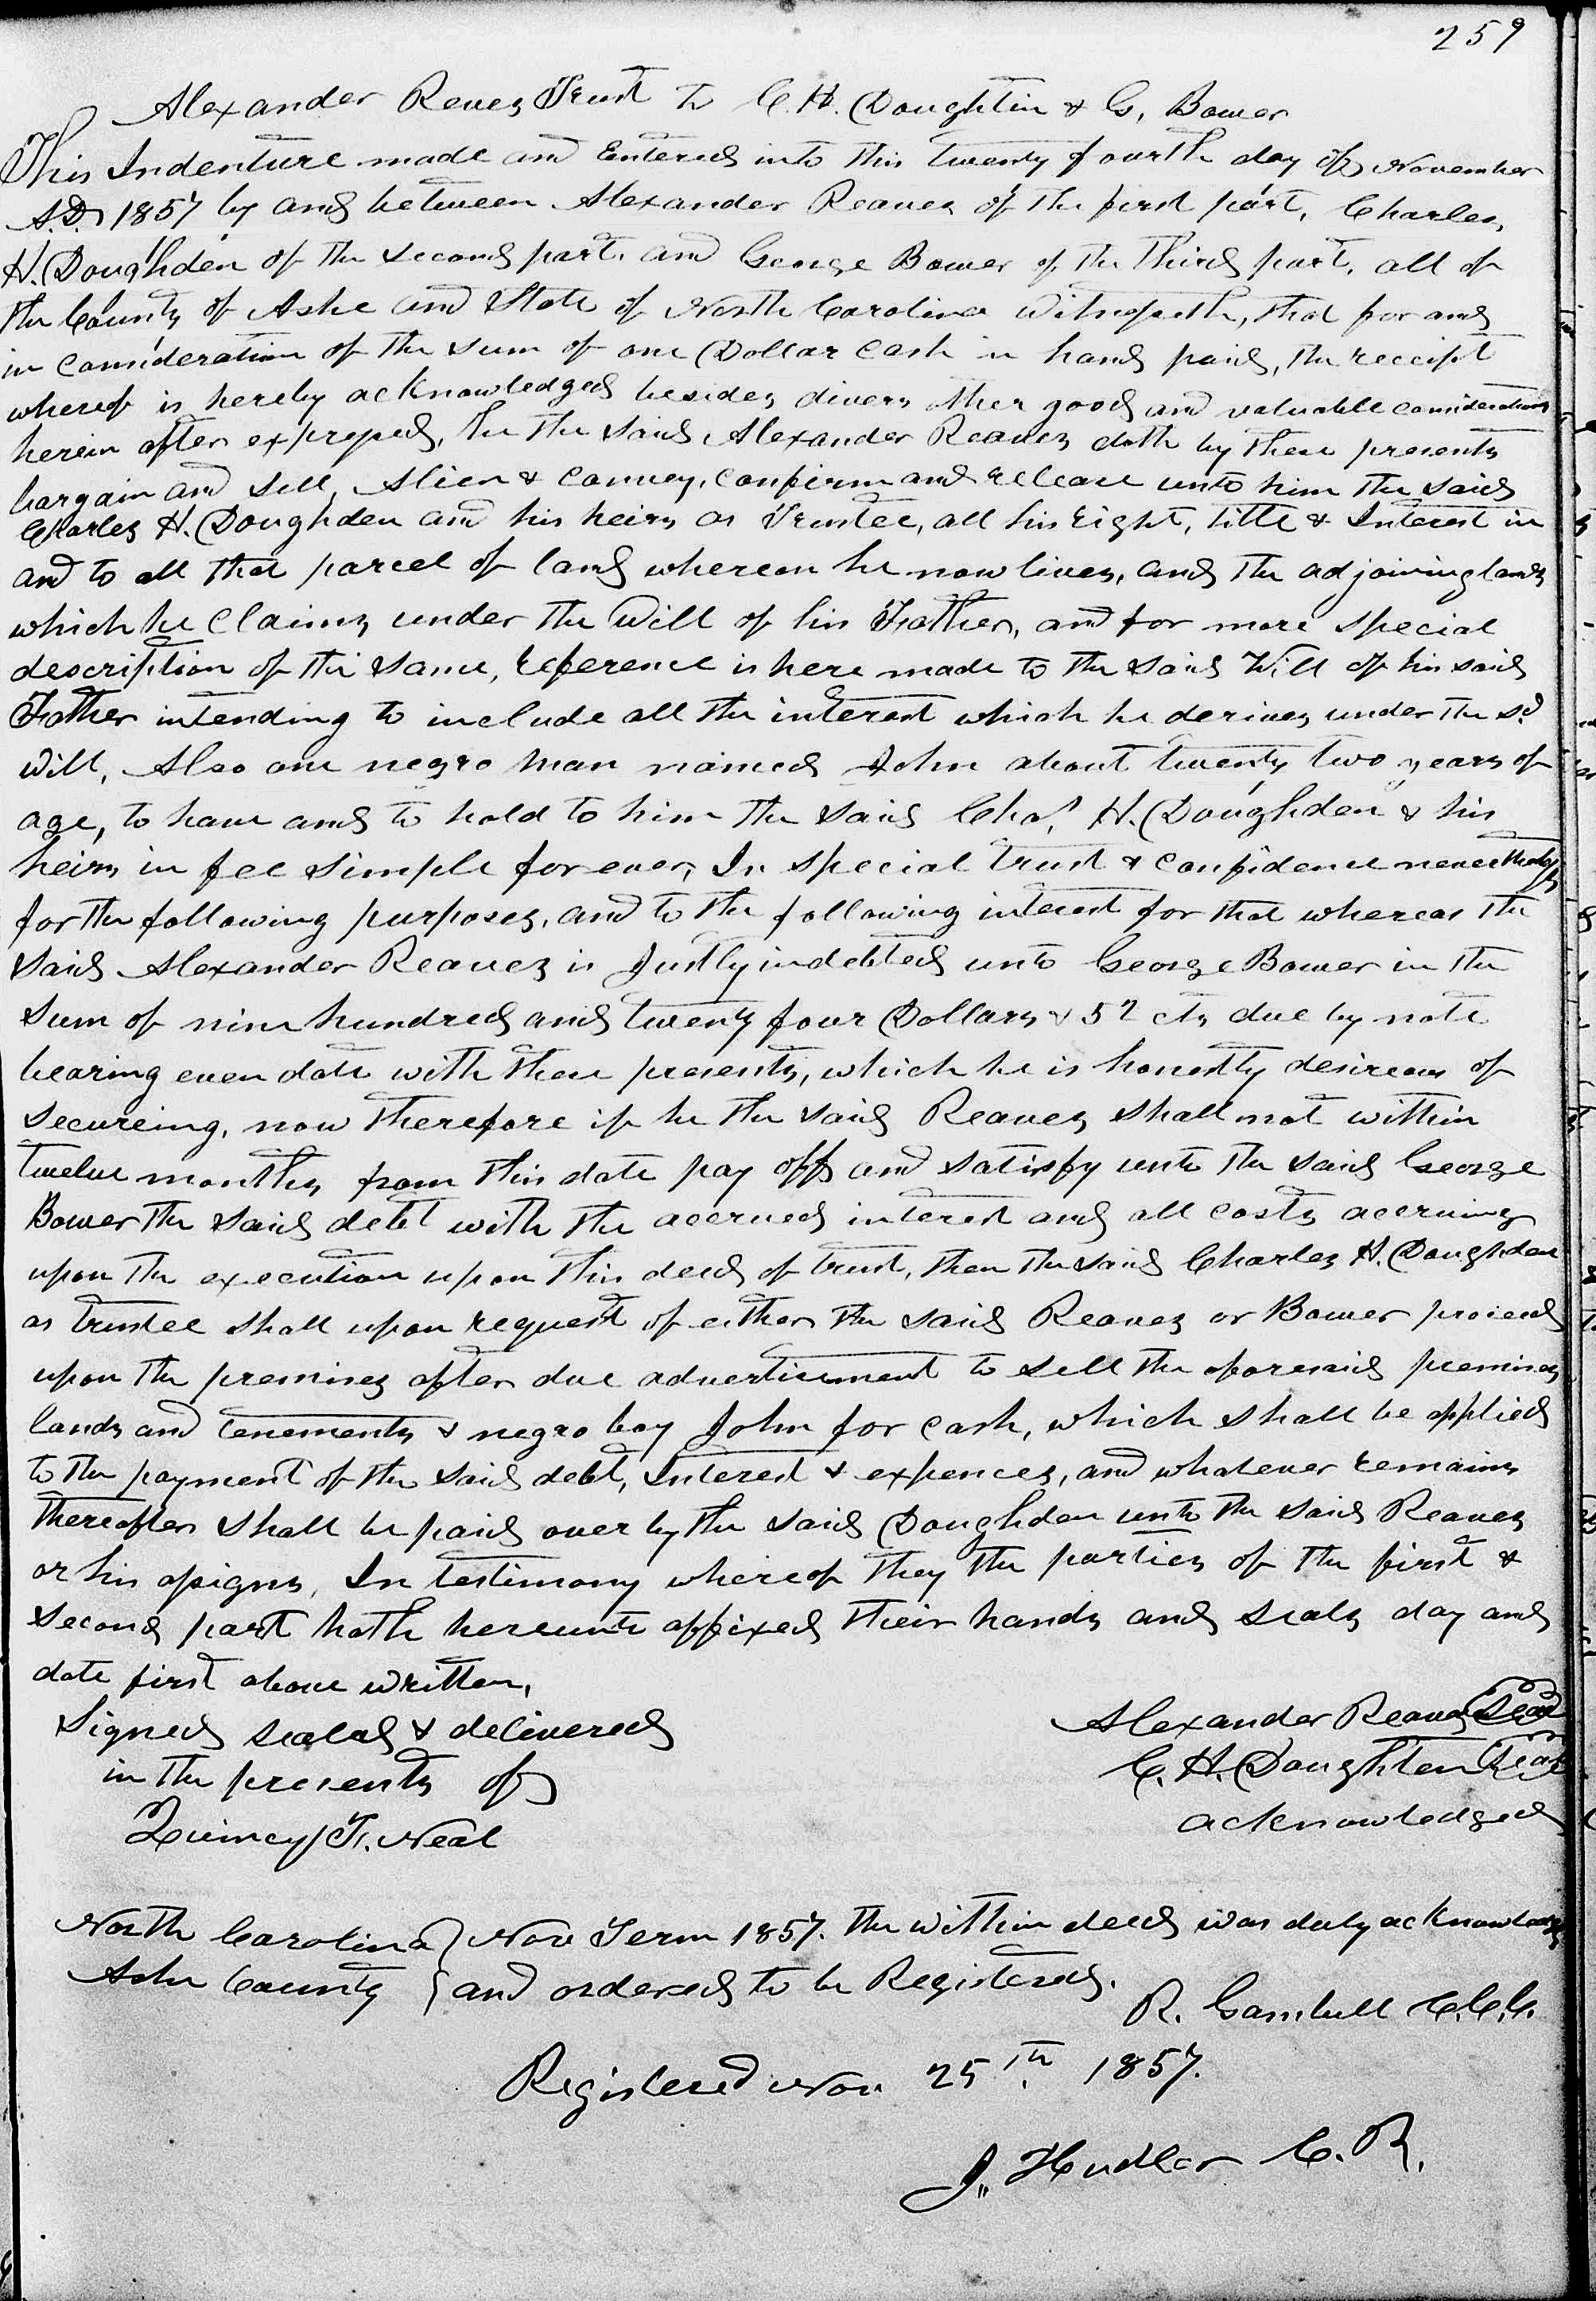 259
Alexander Reves Trust to C. H. Doughtin & G. Bower
This Indenture made and Entered into this twenty fourth day of November
A.D. 1857 by and between Alexander Reaves of the first part, Charles,
H. Doughden of the second part. and George Bower of the third part, all of
the County of Ashe and State of North Carolina Witnesseth, that for and
in consideration of the sum of one Dollar cash in hand paid, the receipt
whereof is hereby acknowledged besides divers other good and valuable considerations
herein after expressed, he the said Alexander Reaves doth by these presents
bargain and sell, Alien & convey, confirm and release unto him the said
Charles H. Doughden and his heirs as Trustee, all his right, title & Interest in
and to all that parcel of land whereon he now lives, and the adjoining lands
which he claims under the Will of his Father, and for more special
description of the same, reference is here made to the said Will of his said
Father intending to include all the interest which he derives under the sd
will, Also one negro man named John about twenty two years of
age, to have and to hold to him the said Chas. H. Doughden & his
heirs in fee simple forever, In special trust & confidence nevertheless
for the following purposes, and to the following interest for that whereas the
said Alexander Reaves is Justly indebted unto George Bower in the
sum of nine hundred and twenty four Dollars & 52 cts due by note
bearing even date with these presents, which he is honestly desireous of
secureing, now therefore if he the said Reaves shall not within
twelve months from this date pay off and satisfy unto the said George
Bower the said debt with the accrued interest and all costs accruing
upon the execution upon this deed of trust, then the said Charles H. Doughden
as trustee shall upon request of either the said Reaves or Bower proceed
upon the premises after due advertisement to sell the aforesaid premises
lands and tenements & negro boy John for cash, which shall be applied
to the payment of the said debt, Interest & expences, and whatever remains
thereafter shall be paid over by the said Doughden unto the said Reaves
or his assigns, In testimony whereof they the parties of the first &
second part hath hereunto affixed their hands and seals day and
date first above written,
Signed sealed & delivered
in the presents of
Quincy F. Neal
Alexander Reaves Seal
C. H. Doughten Seal
acknowledged
North Carolina } Nov Term 1857. The within deed was duly acknowledged
Ashe County } and ordered to be Registered.
R. Gambill C.C.C.
Registered Nov. 25th 1857.
J. Hudler C. R.